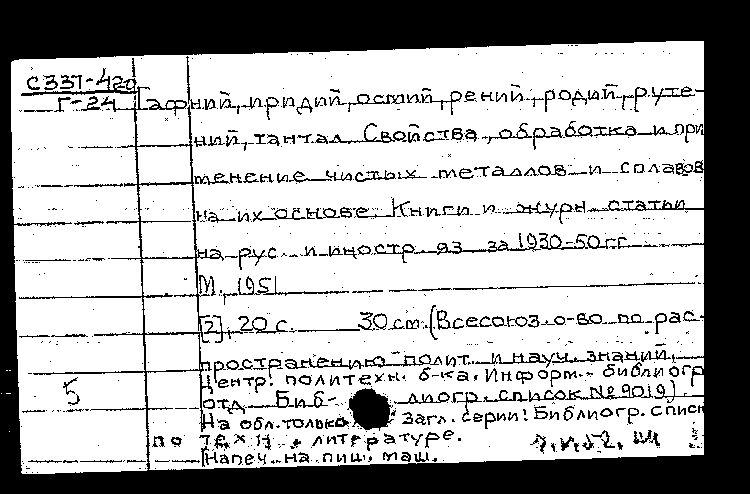 С337-420
Г-24 Гафний, иридий, осмий, рений, родий, руте-
ний, тантал. Свойства, обработка и при
менение чистых металлов и сплавов
на их основе. Книги и журн. статьи
на рус. и иностр. яз. за 1930-50 гг.
М., 1951
[2], 20 с. 30 см. (Всесоюз. о-во по рас-
пространению полит. и науч. знаний.
Центр. политехн. б-ка. Информ.- библиогр
отд. Биб- лиогр. список № 9019).
5
На обл. только Загл. серии: Библиогр. списк
по техн. литературе.
Напеч. на пиш. маш.